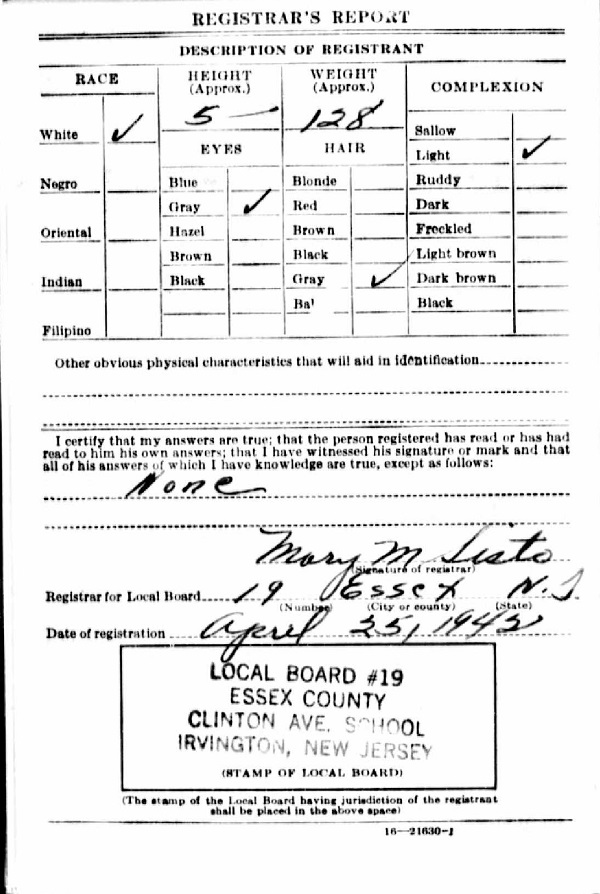 REGISTRAR'S REPORT
DESCRIPTION OF REGISTRANT
RACE
HEIGHT
(Approx.)
WEIGHT
(Approx.)
COMPLEXION
5 —
128
White ✓
EYES
HAIR
Sallow
Light ✓
Negro
Blue
Blonde
Ruddy
Gray ✓
Red
Dark
Oriental
Hazel
Brown
Freckled
Brown
Black
Light brown
Indian
Black
Gray ✓
Dark brown
Bal
Black
Filipino
Other obvious physical characteristics that will aid in identification
I certify that my answers are true; that the person registered has read or has had
read to him his own answers; that I have witnessed his signature or mark and that
all of his answers of which I have knowledge are true, except as follows:
None
Mary M Sisto
(Signature of registrar)
Registrar for Local Board 19 Essex N.J
(Number) (City or county) (State)
Date of registration April 25, 1942
LOCAL BOARD #19
ESSEX COUNTY
CLINTON AVE. SCHOOL
IRVINGTON, NEW JERSEY
(STAMP OF LOCAL BOARD)
(The stamp of the Local Board having jurisdiction of the registrant
shall be placed in the above space)
16—21630-1